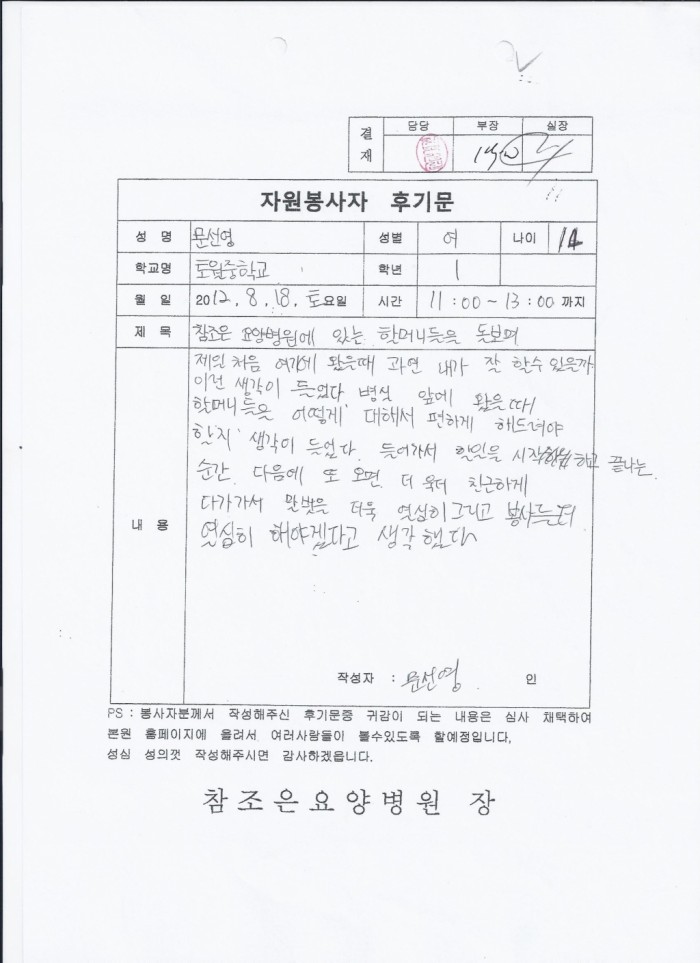 결재 담당 부장 실장
자원봉사자 후기문
성 명 문선영 성별 여 나이 14
학교명 토월중학교 학년 1
월 일 2012. 8. 18. 토요일 시간 11:00 ~ 13:00 까지
제 목 참조은 요양병원에 있는 할머니들을 돗보며
내 용
제일 처음 여기에 왔을때 과연 내가 잘 할수 있을까
이런 생각이 들었다. 병실 앞에 왔을 때
할머니들은 어떻게 대해서 편하게 해드려야
할지 생각이 들었다. 들어가서 할일을 시작하고 끝나는
순간. 다음에 또 오면 더 욱더 친근하게
다가가서 말벗을 더욱 열심히 그리고 봉사든 더
열심히 해야겠다고 생각 했다
작성자 : 문선영 인
PS : 봉사자분께서 작성해주신 후기문중 귀감이 되는 내용은 심사 채택하여
본원 홈페이지에 올려서 여러사람들이 볼수있도록 할예정입니다.
성심 성의껏 작성해주시면 감사하겠읍니다.
참조은요양병원 장